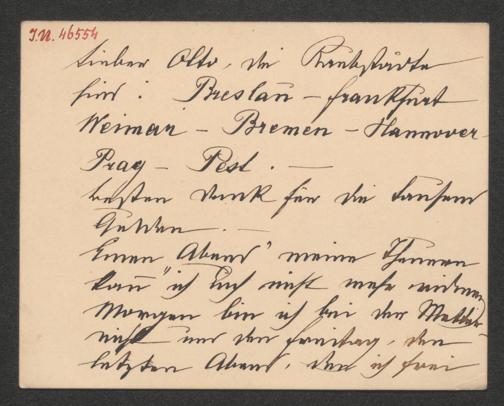 I.N. 46554
Lieber Otto, die Raubstädte
sind: Breslau – Frankfurt
Weimar – Bremen – Hannover
Prag – Pest. —
besten Dank für die tausend
Gulden. —
Einen Abend "meine Theuren
kann" ich Euch nicht mehr widmen
Morgen bin ich bei der
nicht nur den Freitag, den
letzten Abend, den ich frei